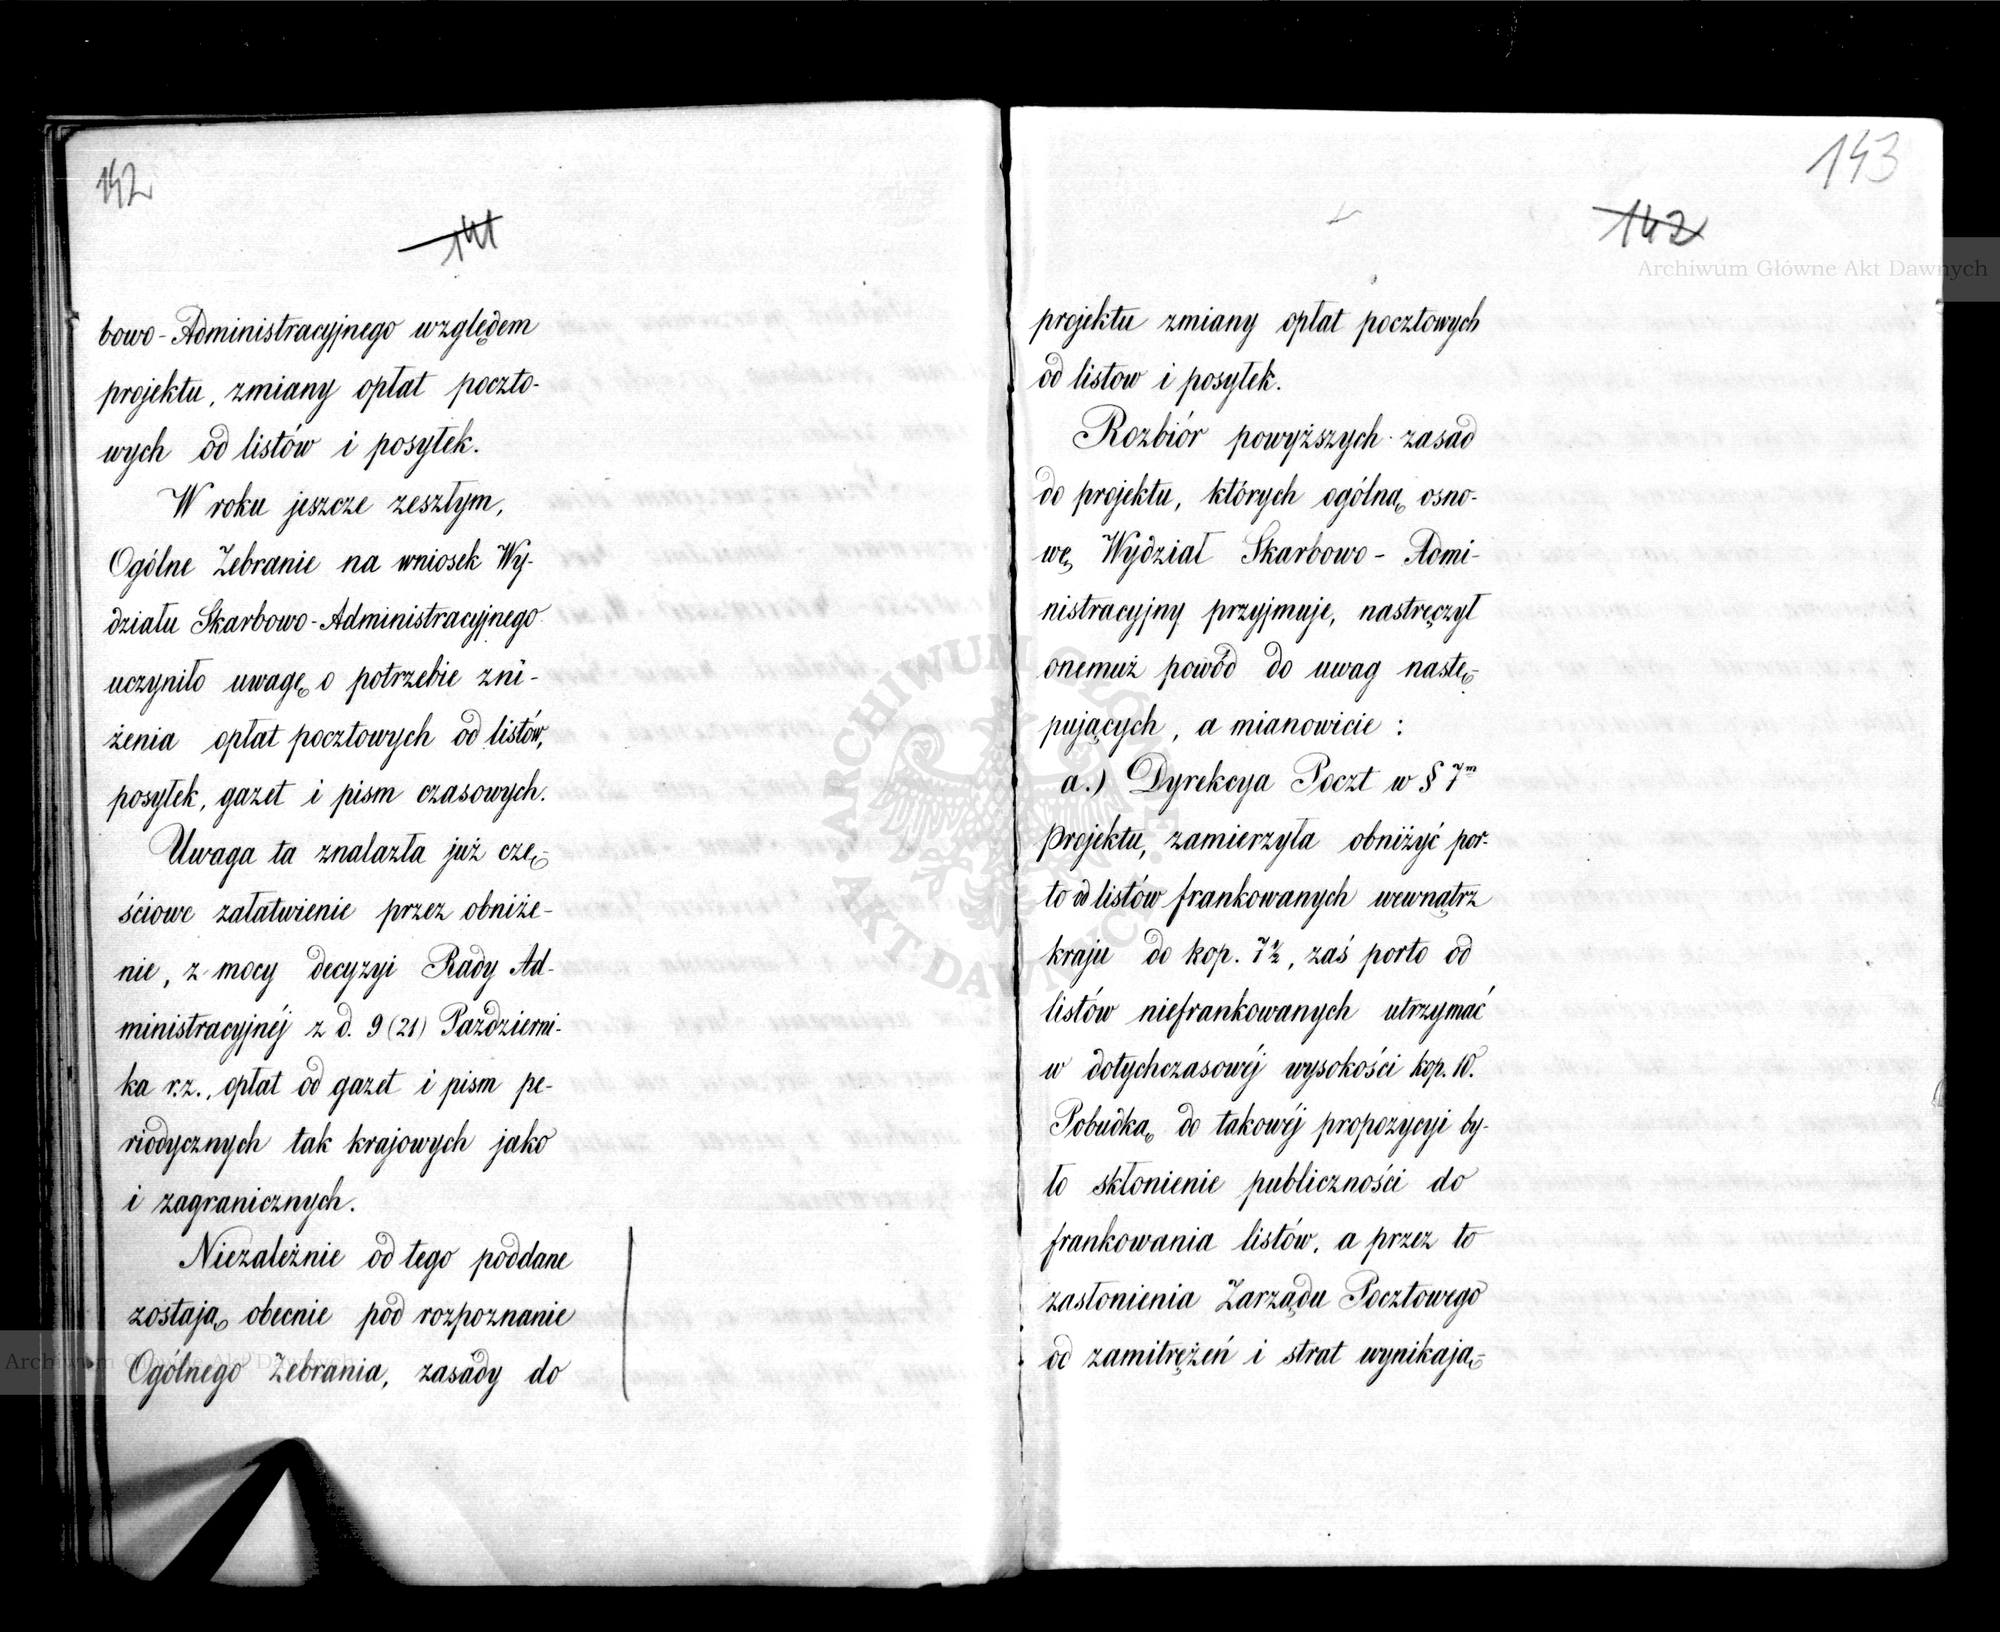 142
141
bowo-Administracyjnego względem
projektu, zmiany opłat poczto-
wych od listów i posyłek.
W roku jeszcze zeszłym,
Ogólne Zebranie na wniosek Wy-
działu Skarbowo-Administracyjnego
uczyniło uwagę o potrzebie zni-
żenia opłat pocztowych od listów,
posyłek, gazet i pism czasowych.
Uwaga ta znalazła już czę-
ściowe załatwienie przez obniże-
nie, z mocy decyzyi Rady Ad-
ministracyjnéj z d. 9 (21) Październi-
ka r.z., opłat od gazet i pism pe-
riodycznych tak krajowych jako
i zagranicznych.
Niezależnie od tego poddane
zostają obecnie pod rozpoznanie
Ogólnego Zebrania, zasady do
143
142
projektu zmiany opłat pocztowych
od listow i posyłek.
Rozbiór powyższych zasad
do projektu, których ogólną osno-
wę Wydział Skarbowo-Admi-
nistracyjny przyjmuje, nastręczył
onemuż powód do uwag nastę-
pujących, a mianowicie:
a.) Dyrekcya Poczt w § 7m
Projektu, zamierzyła obniżyć por-
to od listów frankowanych wewnątrz
kraju do kop. 7½, zaś porto od
listów niefrankowanych utrzymać
w dotychczasowéj wysokości kop. 10.
Pobudką do takowéj propozycyi by-
ło skłonienie publiczności do
frankowania listów, a przez to
zasłonienia Zarządu Pocztowego
od zamitrężeń i strat wynikają-
Archiwum Główne Akt Dawnych
Archiwum Główne Akt Dawnych
ARCHIWUM GŁÓWNE AKT DAWNYCH